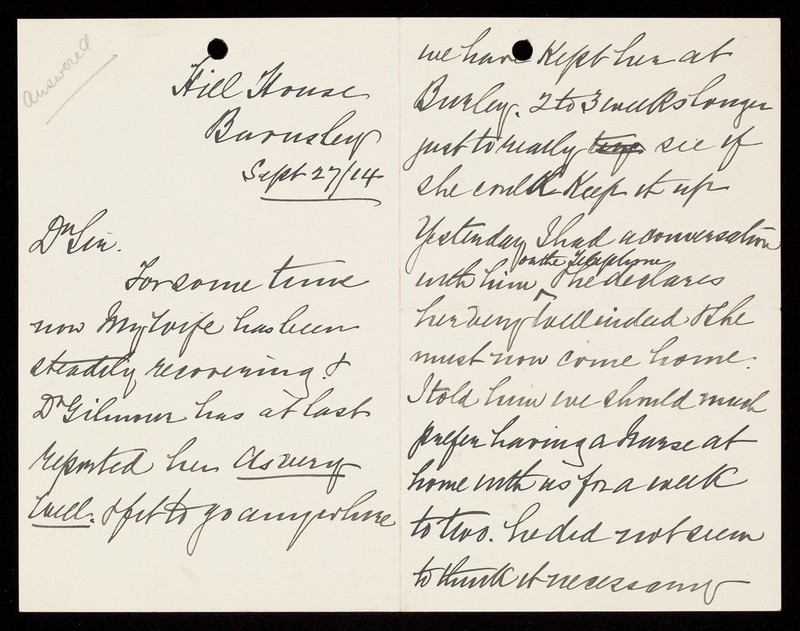 Answered
Hill House
Barnsley
Sept 27/14
Dr Sir.
For some time
now My Wife has been
steadily recovering. &
Dr Gilmour has at last
reported her As very
Well. & fit to go anywhere
we have Kept her at
Burley. 2 to 3 weeks longer
just to really see if
she could Keep it up
Yesterday I had a conversation
on the Telephone
with him, & he declares
her very Well indeed & she
must now come home.
I told him we should much
prefer having a Nurse at
home with us for a week
to two. he did not seem
to think it necessary